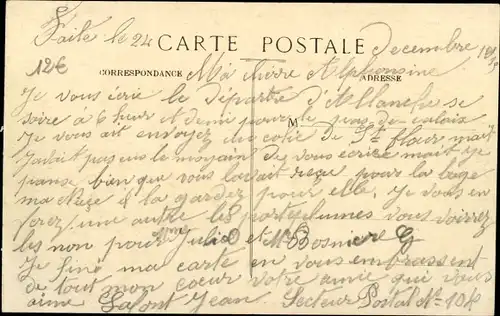 Faite le 24 CARTE POSTALE Decembre 191
12€ CORRESPONDANCE Ma chère Alphonsine ADRESSE
Je vous écrie le départre d'Allanche se
soire a 6 heur et demi pour le pas-de-calais
M
Je vous ait envoyez du colie de St flour mait
Jabait pas eus le moyain de vous écrire mait je
panse bien que vous l'orait reçu pour la bage
ma Nièce à la gardez pour elle. Je vous en
verez une autre les portes plumes vous voirrez
les non pour Julie et Mr Bosniere
Je finé ma carte en vous embrassent
de tout mon coeur votre amie qui vous
aime Lafont Jean Secteur Postal No 104